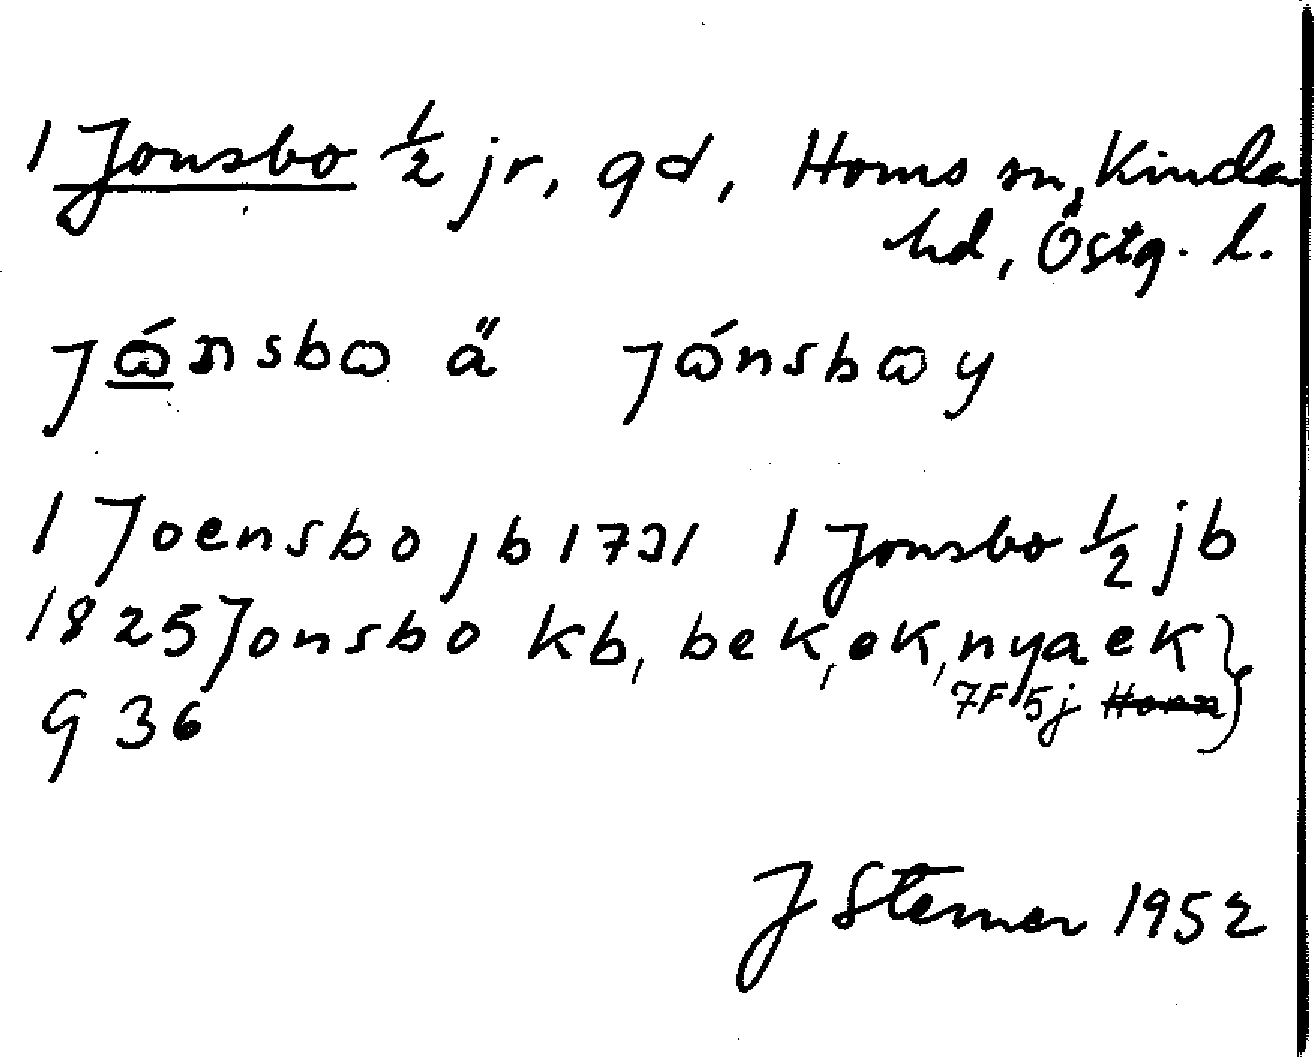 1 Jonsbo ½ jr, gd, Horns sn, Kinda
hd, Östg. l.
jɷ́nsbɷ ä jɷ́nsbɷ y
1 Joensbo jb 1721 1 Jonsbo ½ jb
1825 Jonsbo kb, bek, ek, nyaek
7F 5j Horn
G 36
J Sterner 1952